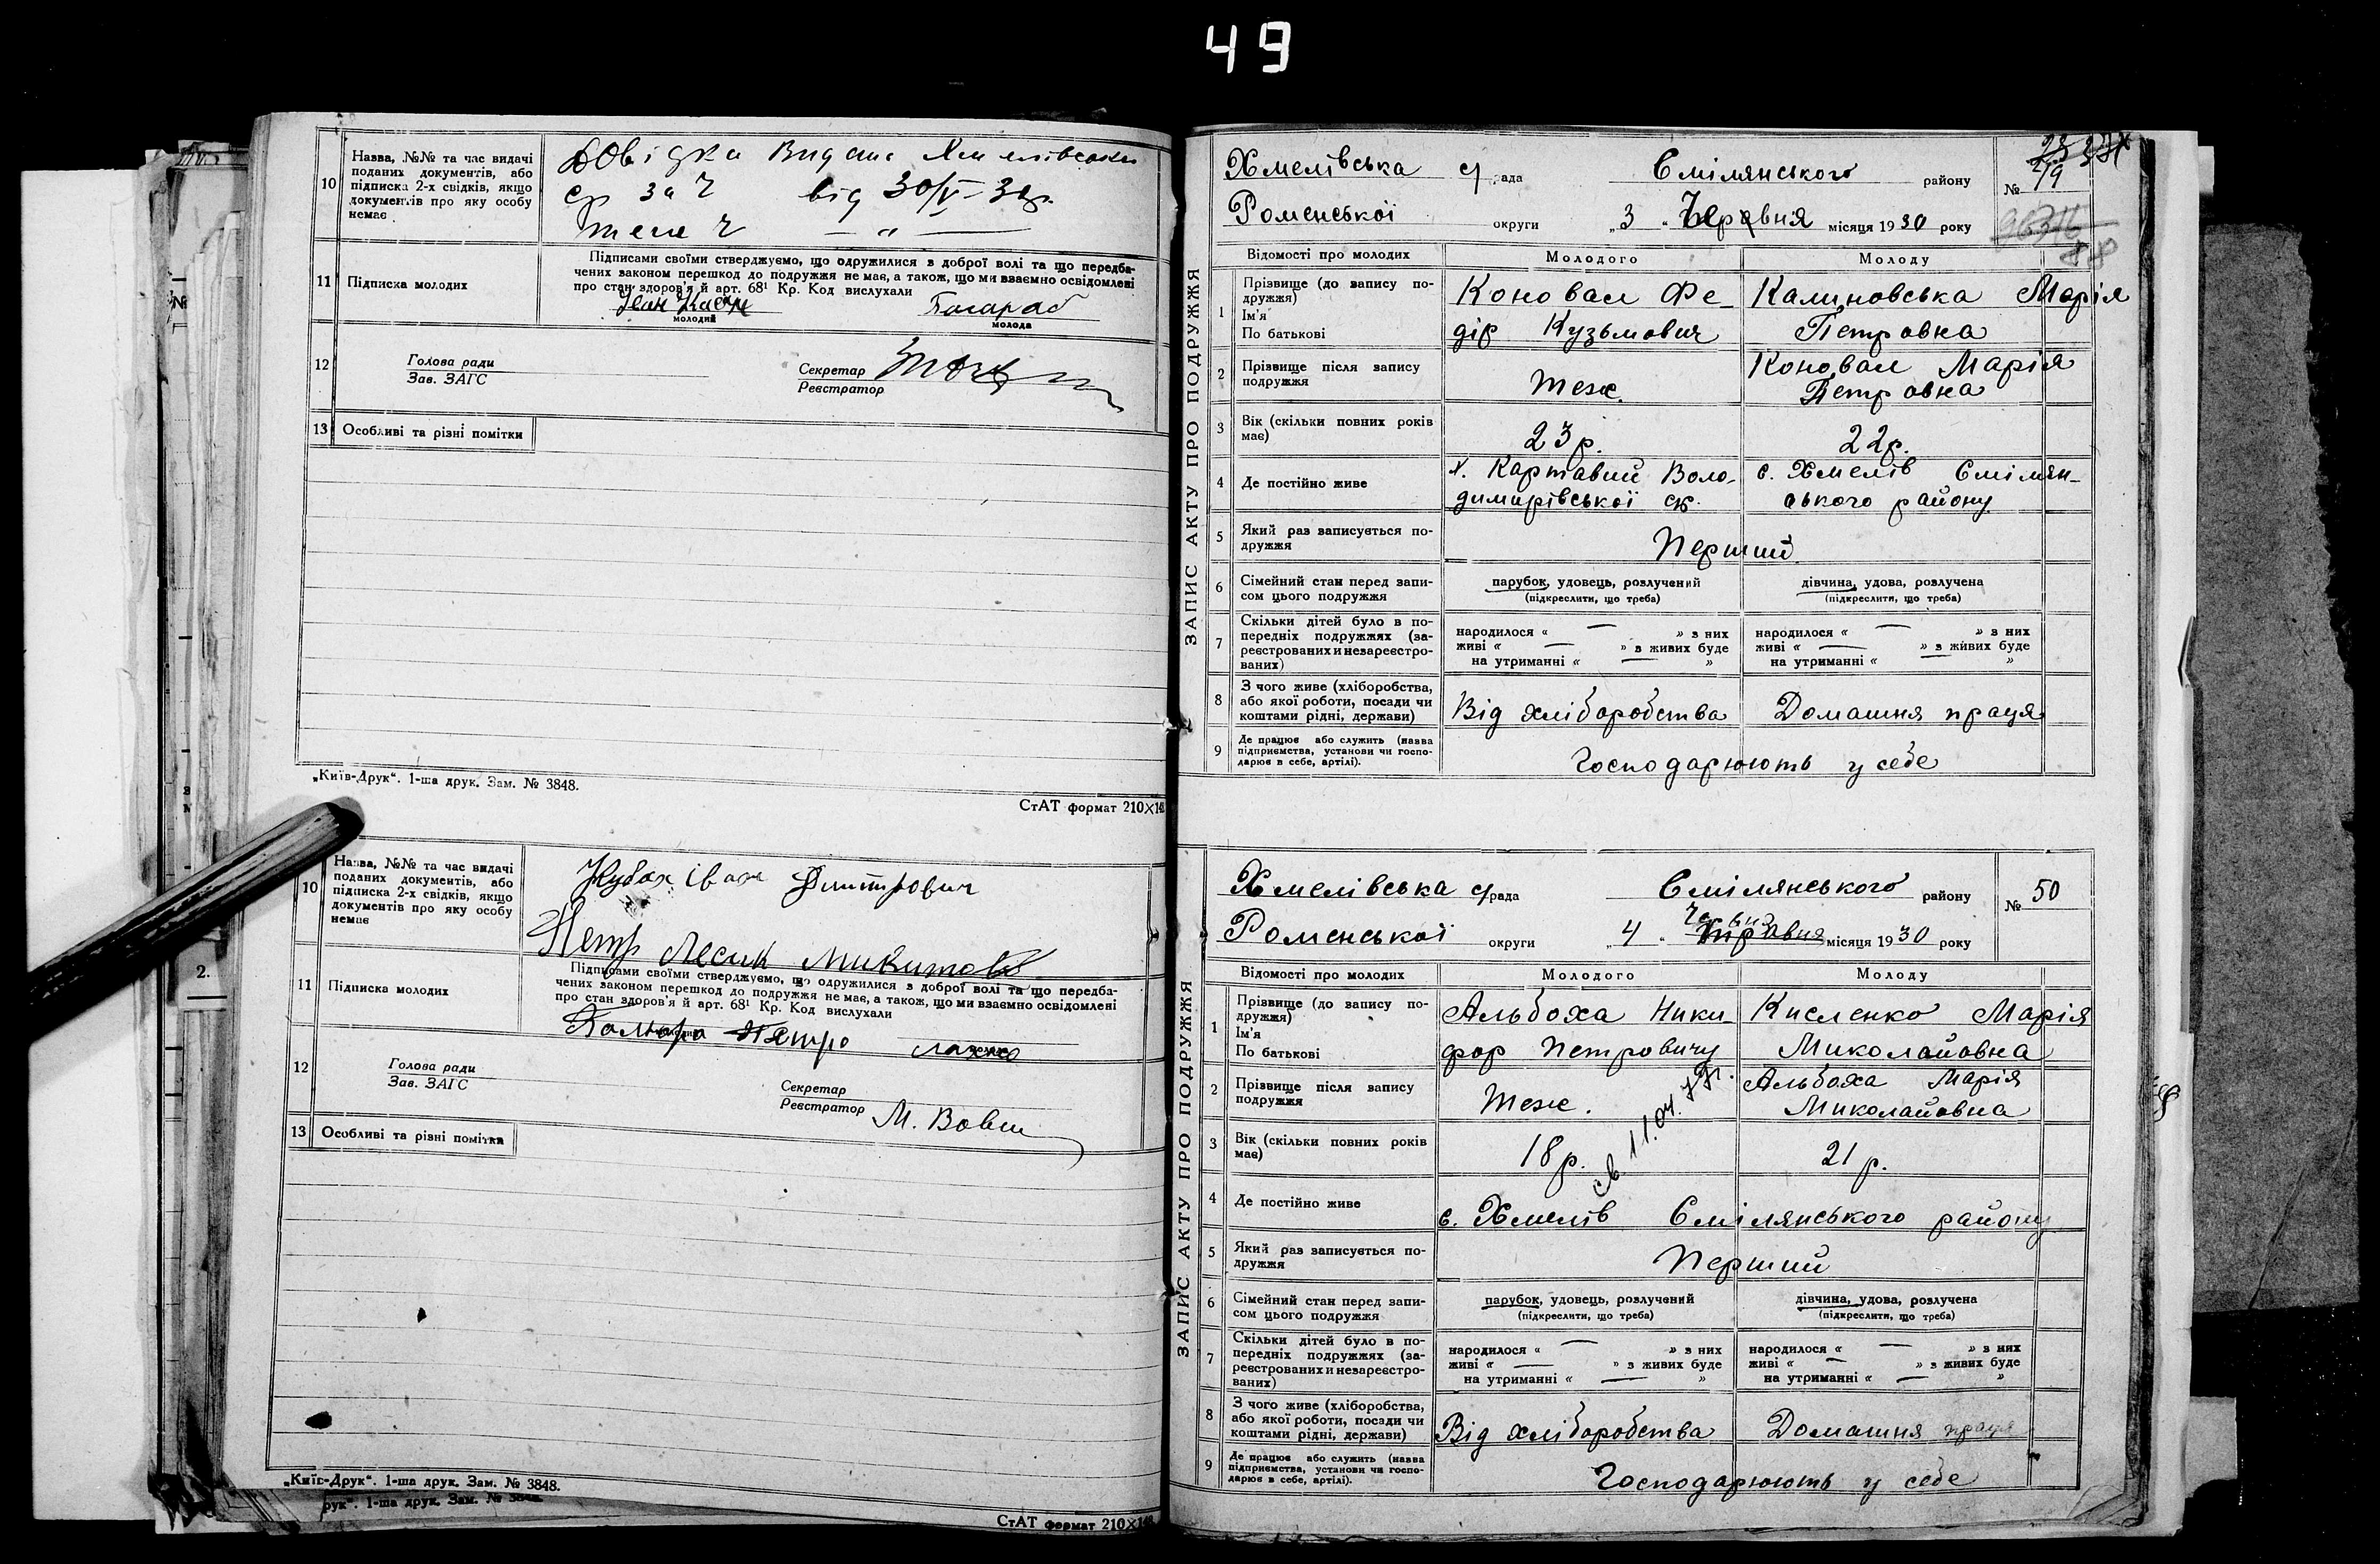 49
10 Назва, №№ та час видачі
поданих документів, або
підписка 2-х свідків, якщо
документів про яку особу
немає
Довідка Видана Хмелівською
ср за Ч від 30/V-30р.
теж Ч — „ —
11 Підписка молодих
Підписами своїми стверджуємо, що одружилися з доброї волі та що передба-
чених законом перешкод до подружжя не має, а також, що ми взаємно освідомлені
про стан здоров'я й арт. 68¹ Кр. Код вислухали
Іван
молодий молода
12 Голова ради
Зав. ЗАГС
Секретар
Реєстратор
13 Особливі та різні помітки
„Київ-Друк“. 1-ша друк. Зам. № 3848.
СтАТ формат 210×148
10 Назва, №№ та час видачі
поданих документів, або
підписка 2-х свідків, якщо
документів про яку особу
немає
Іван Дмитрович
Петр Лесик Микитов
11 Підписка молодих
Підписами своїми стверджуємо, що одружилися з доброї волі та що передба-
чених законом перешкод до подружжя не має, а також, що ми взаємно освідомлені
про стан здоров'я й арт. 68¹ Кр. Код вислухали
Петро
12 Голова ради
Зав. ЗАГС
Секретар
Реєстратор М. Вовк
13 Особливі та різні помітки
„Київ-Друк“. 1-ша друк. Зам. № 3848.
рук“. 1-ша друк. Зам. № 3848.
СтАТ формат 210×148
ЗАПИС АКТУ ПРО ПОДРУЖЖЯ
Хмелівська с/рада Смілянського району № 49
Роменської округи „3“ Червня місяця 1930 року
Відомості про молодих Молодого Молоду
1 Прізвище (до запису по-
дружжя)
Ім'я
По батькові
Коновал Фе-
дір Кузьмович
Калиновська Марія
Петровна
2 Прізвище після запису
подружжя
Теж.
Коновал Марія
Петровна
3 Вік (скільки повних років
має)
23 р. 22 р.
4 Де постійно живе
х. Картавий Воло-
димирівської ср.
с. Хмелів Смілян-
ського району
5 Який раз записується по-
дружжя
Перший
6 Сімейний стан перед запи-
сом цього подружжя
парубок, удовець, розлучений
(підкреслити, що треба)
дівчина, удова, розлучена
(підкреслити, що треба)
7 Скільки дітей було в по-
передніх подружжях (за-
реєстрованих и незареєстро-
ваних)
народилося « — » з них
живі « — » з живих буде
на утриманні « — »
народилося « — » з них
живі « — » з живих буде
на утриманні « »
8 З чого живе (хліборобства,
або якої роботи, посади чи
коштами рідні, держави)
Від хліборобства Домашня праця
9 Де працює або служить (назва
підприємства, установи чи госпо-
дарює в себе, артілі).
Господарюють у себе
ЗАПИС АКТУ ПРО ПОДРУЖЖЯ
Хмелівська с/рада Смілянського району № 50
Роменської округи „4“ Червня Травня місяця 1930 року
Відомості про молодих Молодого Молоду
1 Прізвище (до запису по-
дружжя)
Ім'я
По батькові
Альбоха Ники-
фор Петровичу
Кисленко Марія
Миколайовна
2 Прізвище після запису
подружжя
Теж.
Альбоха Марія
Миколайовна
св. 11.04.77г.
3 Вік (скільки повних років
має)
18 р. 21 р.
4 Де постійно живе
с. Хмелів Смілянського району
5 Який раз записується по-
дружжя
Перший
6 Сімейний стан перед запи-
сом цього подружжя
парубок, удовець, розлучений
(підкреслити, що треба)
дівчина, удова, розлучена
(підкреслити, що треба)
7 Скільки дітей було в по-
передніх подружжях (за-
реєстрованих и незареєстро-
ваних)
народилося « — » з них
живі « — » з живих буде
на утриманні « — »
народилося « — » з них
живі « — » з живих буде
на утриманні « — »
8 З чого живе (хліборобства,
або якої роботи, посади чи
коштами рідні, держави)
Від хліборобства Домашня праця
9 Де працює або служить (назва
підприємства, установи чи госпо-
дарює в себе, артілі).
Господарюють у себе